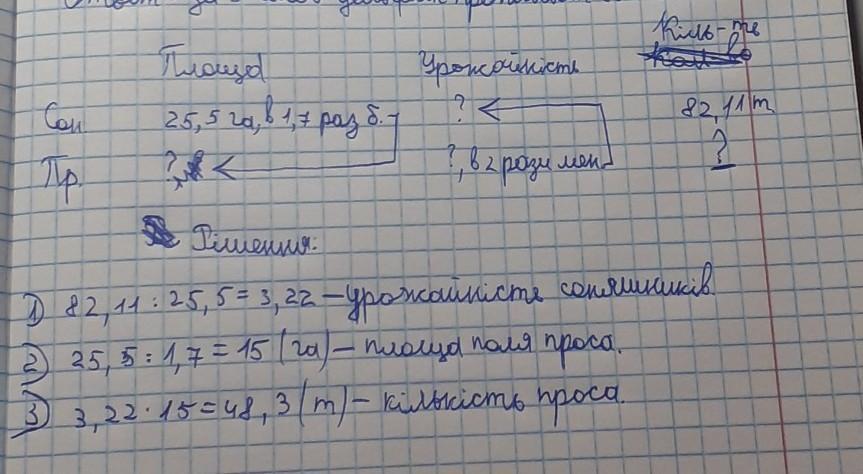 Площа Урожайність Кіль-ть
Сон. 25,5 га, в 1,7 раз б. ? 82,11 т
Пр. ?, ?, в 2 рази мен ?
Рішення:
1) 82,11 : 25,5 = 3,22 – урожайність соняшників.
2) 25,5 : 1,7 = 15 (га) – площа поля проса.
3) 3,22 · 15 = 48,3 (т) – кількість проса.